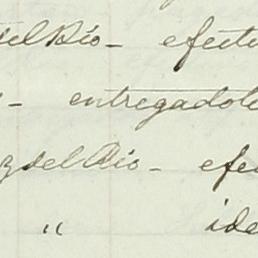 delRío - efectu
- entregadole
zdelRío - efe
" ide